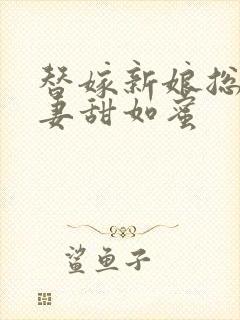 替嫁新娘总
妻甜如蜜
鲨鱼子